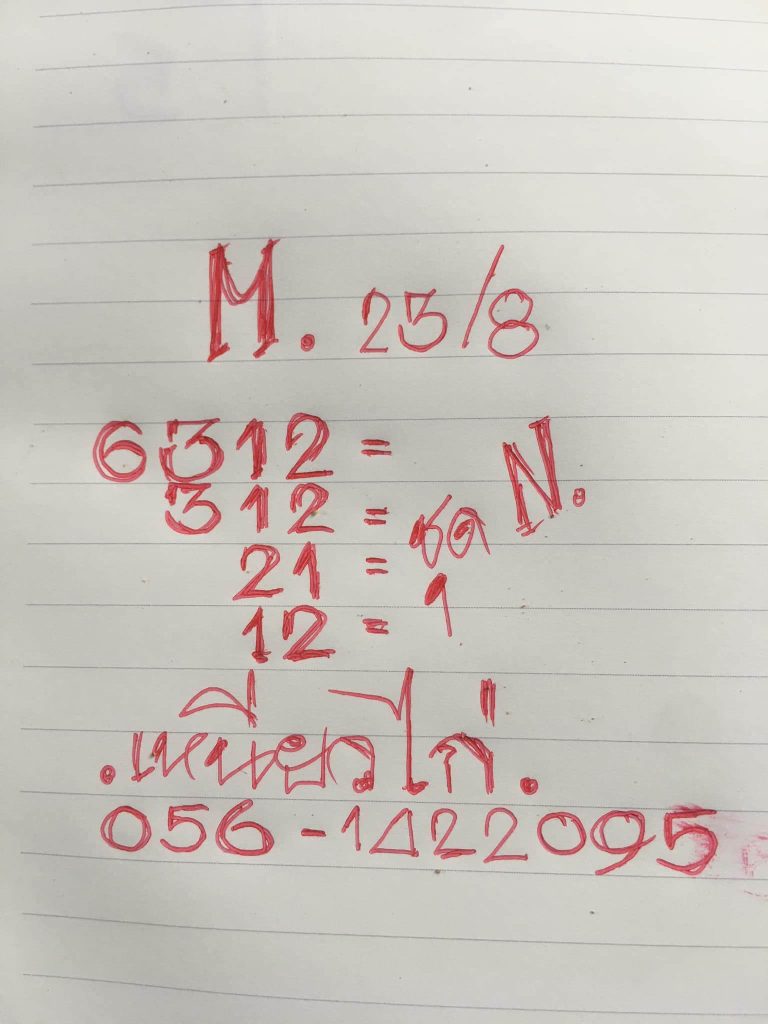 M. 25/8
6312 =
N.
312 =
ชุด
21 =
12 =
.เหนี่ยวไก่.
056-1422095